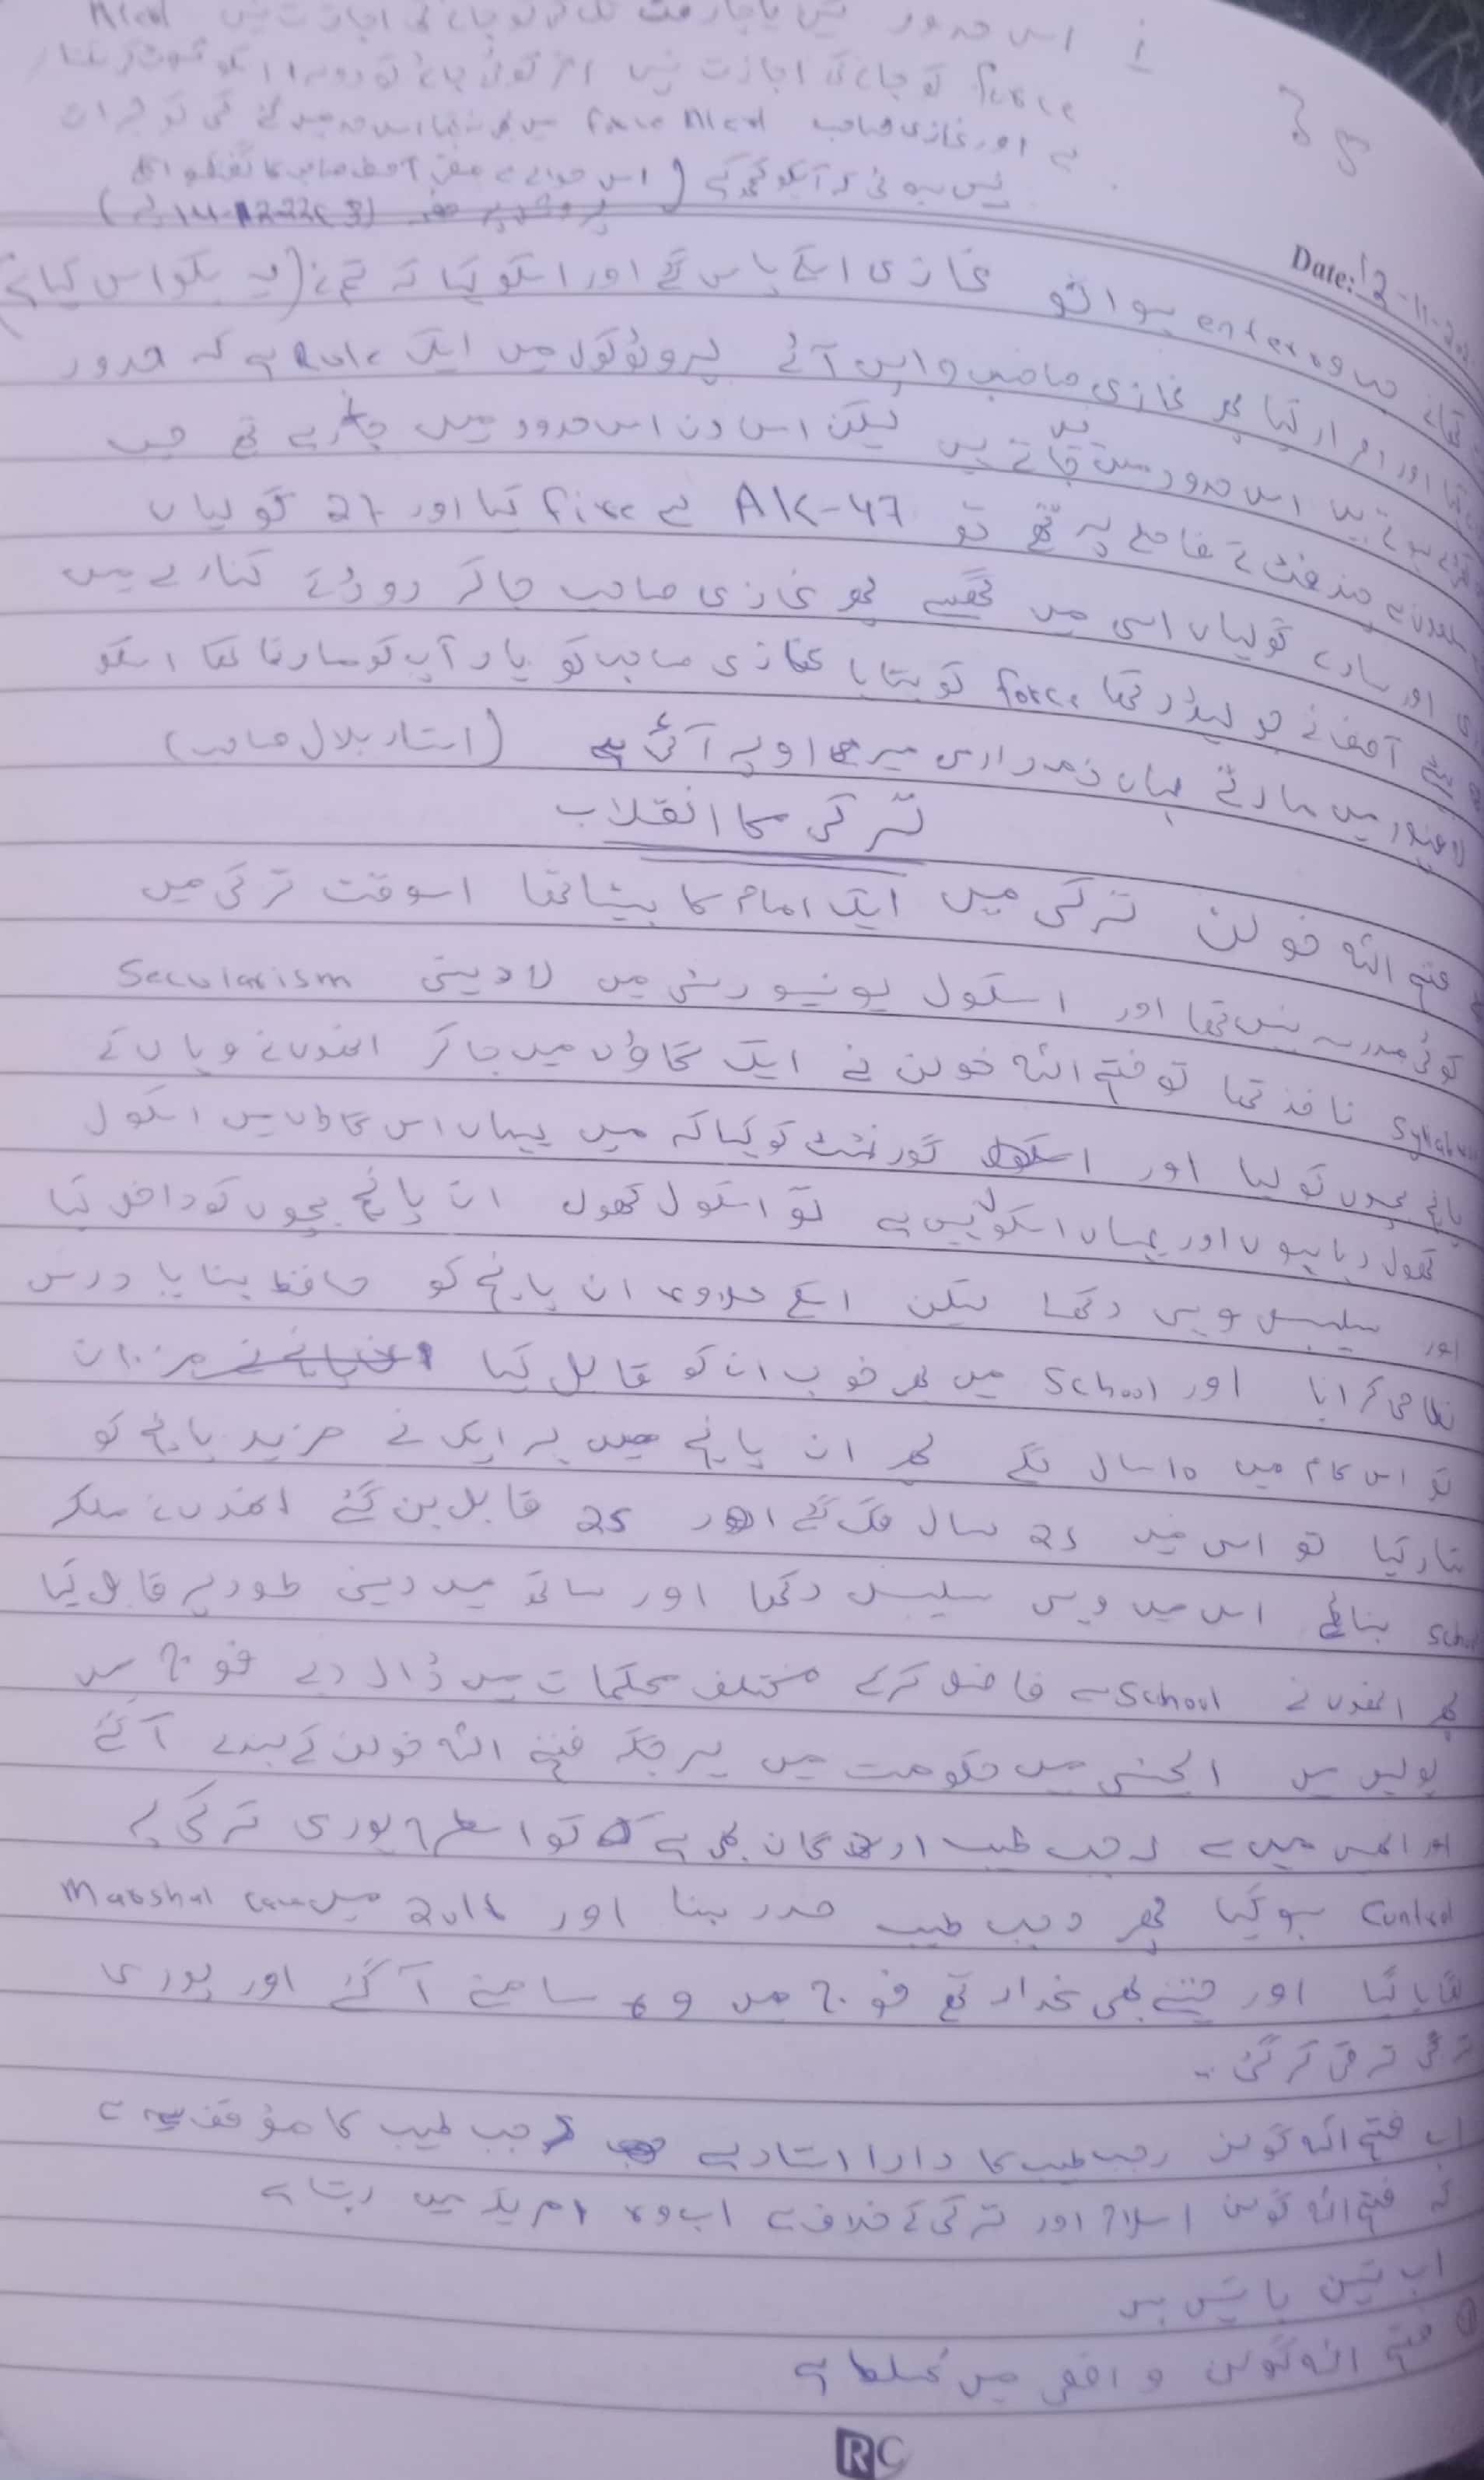 اس حدود میں
force کو جانے کی اجازت نہیں اگر کوئی جائے تو وہ
ہے اور غازی صاحب force Alert میں
نہیں ہوئی کہ آپکو کچھ کہے (اس حوالے سے مفتی آصف صاحب کا گفتگو
14-12-22
Date: 12-11-
جب وہ enter ہوا تو غازی اسکے پاس گئے اور اسکو کہا کہ تم نے (یہ بکواس کیا ہے)
اور اقرار کیا پھر غازی صاحب واپس آئے پروٹوکول میں ایک Rule ہے کہ حدور
ہوتے ہیں اس حدود میں نہیں جاتے ہیں لیکن اس دن اس حدود میں جارہے تھے جب
چند فٹ کے فاصلے پہ تھے تو AK-47 سے fire کیا اور 27 گولیاں
اور سارے گولیاں اسی میں گھسے پھر غازی صاحب جاکر روڈ کے کنارے میں
آصف نے جو لیڈر تھا force کو بتایا غازی صاحب کو یار آپ کو مارنا تھا اسکو
لاہور میں مارتے یہاں ذمہ داری میرے اوپر آئی ہے (استاد بلال صاحب)
ترکی کا انقلاب
فتح اللہ خولن ترکی میں ایک امام کا بیٹا تھا اسوقت ترکی میں
کوئی مدرسہ نہیں تھا اور اسکول یونیورسٹی میں لادینی Secularism
Syllabus نافذ تھا تو فتح اللہ خولن نے ایک گاؤں میں جاکر انھوں نے وہاں کے
پانچ بچوں کو لیا اور گورنمنٹ کو کہا کہ میں یہاں اس گاؤں میں اسکول
کھول رہا ہوں اور یہاں اسکول نہیں ہے تو اسکول کھول ان پانچ بچوں کو داخل کیا
اور سلیبس وہی رکھا لیکن اسکے علاوہ ان پانچ کو حافظ بنایا درس
نظامی کرایا اور School میں بھی خوب ان کو قابل کیا
تو اس کام میں 10 سال لگے پھر ان پانچ میں ہر ایک نے مزید پانچ کو
تیار کیا تو اس میں 25 سال لگ گئے اور 25 قابل بن گئے انھوں نے ملکر
School بنائے اس میں وہی سلیبس رکھا اور ساتھ میں دینی طور پر قابل کیا
پھر انھوں نے School سے فاضل کرکے مختلف محکمات میں ڈال دیے فوج میں
پولیس میں ایجنسی میں حکومت میں ہر جگہ فتح اللہ خولن کے بندے آگئے
اور انھیں میں سے رجب طیب اردگان بھی ہے تو اسطرح پوری ترکی پہ
Control ہوگیا پھر رجب طیب صدر بنا اور 2016 میں Marshal Law
لگایا گیا اور جتنے بھی غدار تھے فوج میں وہ سامنے آگئے اور پوری
ترکی ترقی کر گئی۔
اب فتح اللہ گولن رجب طیب کا دادا استاد ہے رجب طیب کا مؤقف یہ ہے
کہ فتح اللہ گولن اسلام اور ترکی کے خلاف ہے اب وہ امریکہ میں رہتا ہے
اب تین باتیں ہیں
① فتح اللہ گولن واقعی میں غلط ہے
RC